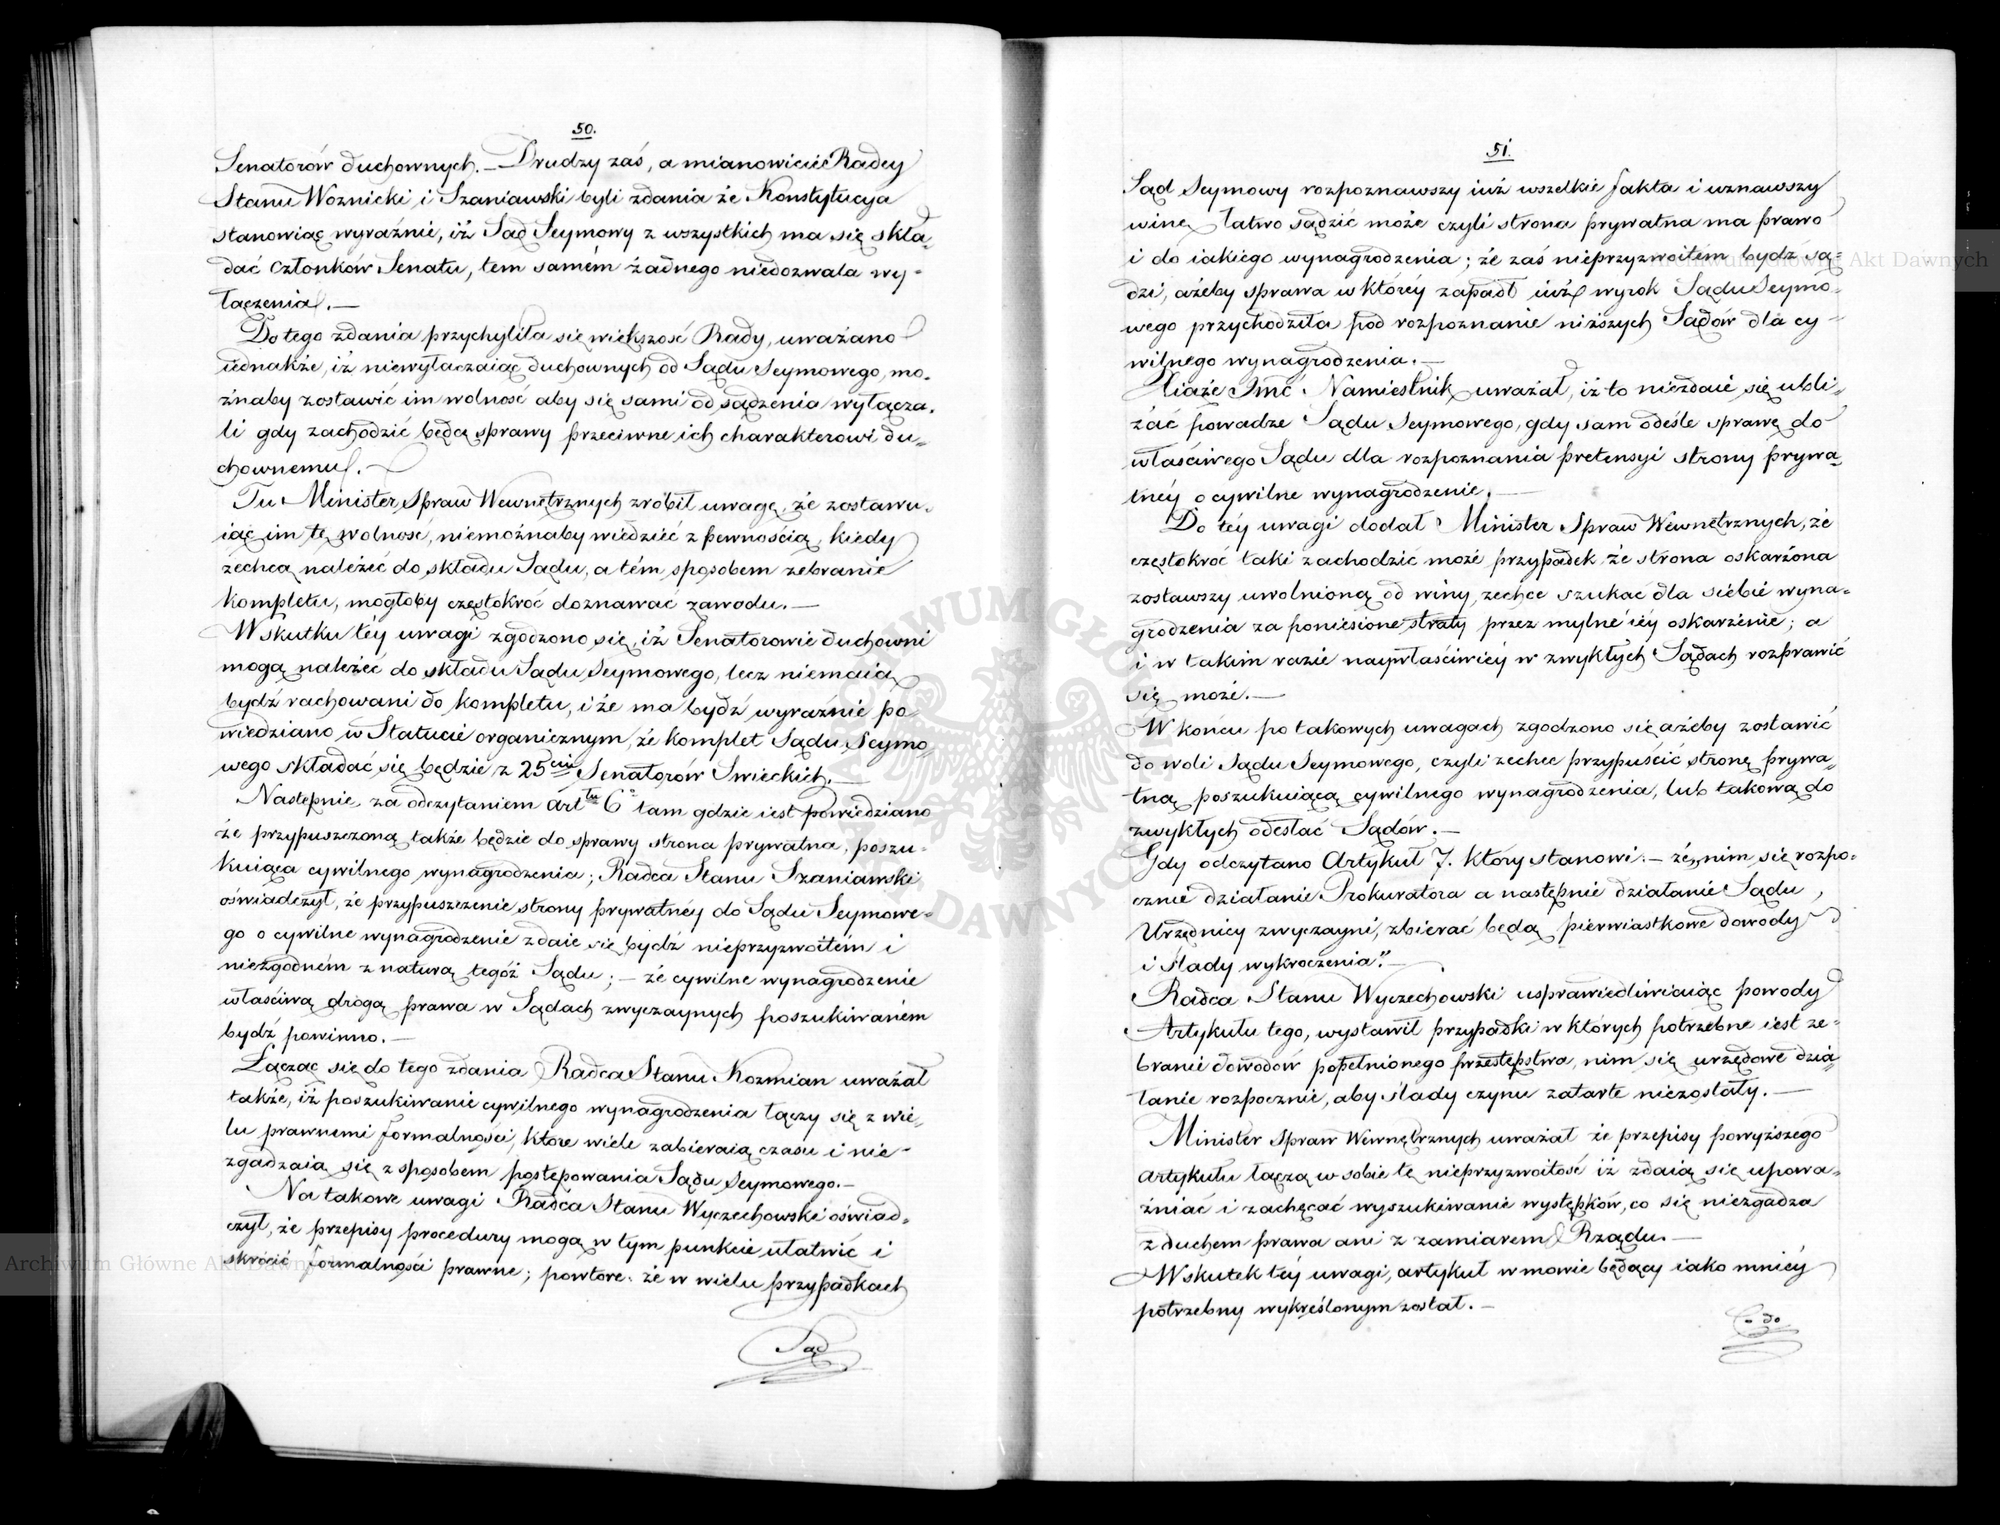 50.
Senatorów duchownych. – Drudzy zaś, a mianowicié Radcy
Stanu Woznicki i Szaniawski byli zdania że Konstytucya
stanowiąc wyraźnie, iż Sąd Seymowy z wszystkich ma się skła-
dać członków Senatu, tem samém żadnego niedozwala wy-
łączenia. –
Do tego zdania przychyliła się większość Rady, uważano
iednakże, iż niewyłączaiąc duchownych od Sądu Seymowego, mo-
żnaby zostawić im wolność aby się sami od sądzenia wyłącza-
li gdy zachodzić będą sprawy przeciwne ich charakterowi du-
chownemu. –
Tu Minister Spraw Wewnętrznych zróbił uwagę, że zostawu-
iąc im tę wolność, niemożnaby wiedzieć z pewnością, kiedy
zechcą należéć do składu Sądu, a tém sposobem zebranie
kompletu, mogłoby częstokroć doznawać zawodu. –
W skutku téy uwagi zgodzono się, iż Senatorowie duchowni
mogą należéć do składu Sądu Seymowego, lecz niemaią
bydź rachowani do kompletu, i że ma bydź wyraźnie po-
wiedziano w Statucie organicznym, że komplet Sądu Seymo-
wego składać się będzie z 25ciu Senatorów Swieckich. –
Następnie, za odczytaniem Artłu 6° tam gdzie iest powiedziano
że przypuszczoną także będzie do sprawy strona prywatna, poszu-
kuiąca cywilnego wynagrodzenia; Radca Stanu Szaniawski
oświadczył, że przypuszczenie strony prywatnéy do Sądu Seymowe-
go o cywilne wynagrodzenie zdaie się bydź nieprzyzwoitém i
niezgodném z naturą tegóż Sądu; – że cywilne wynagrodzenie
właściwą drogą prawa w Sądach zwyczaynych poszukiwaném
bydź powinno. –
Łącząc się do tego zdania Radca Stanu Kozmian uważał
także, iż poszukiwanie cywilnego wynagrodzenia łączy się z wie-
lu prawnemi formalności, które wiele zabieraią czasu i nie-
zgadzaią się z sposobem postępowania Sądu Seymowego. –
Na takowe uwagi Radca Stanu Wyczechowski oświad-
czył, że przepisy procedury mogą w tym punkcie ułatwić i
skrócić formalności prawne; powtore: że w wielu przypadkach
Sąd
51.
Sąd Seymowy rozpoznawszy iuż wszelkie fakta i uznawszy
winę łatwo sądzić może czyli strona prywatna ma prawo
i do iakiego wynagrodzenia; że zaś nieprzyzwoitém bydź są-
dzi, ażeby sprawa w któréy zapadł iuż wyrok Sądu Seymo-
wego przychodziła pod rozpoznanie niższych Sądów dla cy-
wilnego wynagrodzenia. –
Xiąże Jmć Namiestnik uważał, iż to niezdaie się ubli-
żać powadze Sądu Seymowego, gdy sam odeśle sprawę do
właściwego Sądu dla rozpoznania pretensyi strony prywa-
tnéy o cywilne wynagrodzenie. –
Do téy uwagi dodał Minister Spraw Wewnętrznych, że
częstokroć taki zachodzić może przypadek że strona oskarżona
zostawszy uwolnioną od winy, zechce szukać dla siebie wyna-
grodzenia za poniesione straty przez mylne iéy oskarżenie; a
i w takim razie naywłaściwiéy w zwykłych Sądach rozprawić
się może. –
W końcu po takowych uwagach zgodzono się ażeby zostawić
do woli Sądu Seymowego, czyli zechce przypuścić stronę prywa-
tną poszukuiącą cywilnego wynagrodzenia, lub takową do
zwykłych odesłać Sądów. –
Gdy odczytano Artykuł 7. który stanowi: – że „nim się rozpo-
cznie działanie Prokuratora a następnie działanie Sądu,
Urzędnicy zwyczayni, zbierać będą pierwiastkowe dowody
i ślady wykroczenia". –
Radca Stanu Wyczechowski usprawiedliwiaiąc powody
Artykułu tego, wystawił przypadki w których potrzebne iest ze-
branie dowodów popełnionego przestępstwa, nim się urzędowe dzia-
łanie rozpocznie, aby ślady czynu zatarte niezostały. –
Minister Spraw Wewnętrznych uważał że przepisy powyższego
artykułu łączą w sobie tę nieprzyzwoitość iż zdaią się upowa-
żniać i zachęcać wyszukiwanie występków, co się niezgadza
z duchem prawa ani z zamiarem Rządu. –
W skutek téy uwagi, artykuł w mowie będący iako mniéy
potrzebny wykréślonym został. –
Co do
ARCHIWUM GŁÓWNE AKT DAWNYCH
Archiwum Główne Akt Dawnych
Archiwum Główne Akt Dawnych